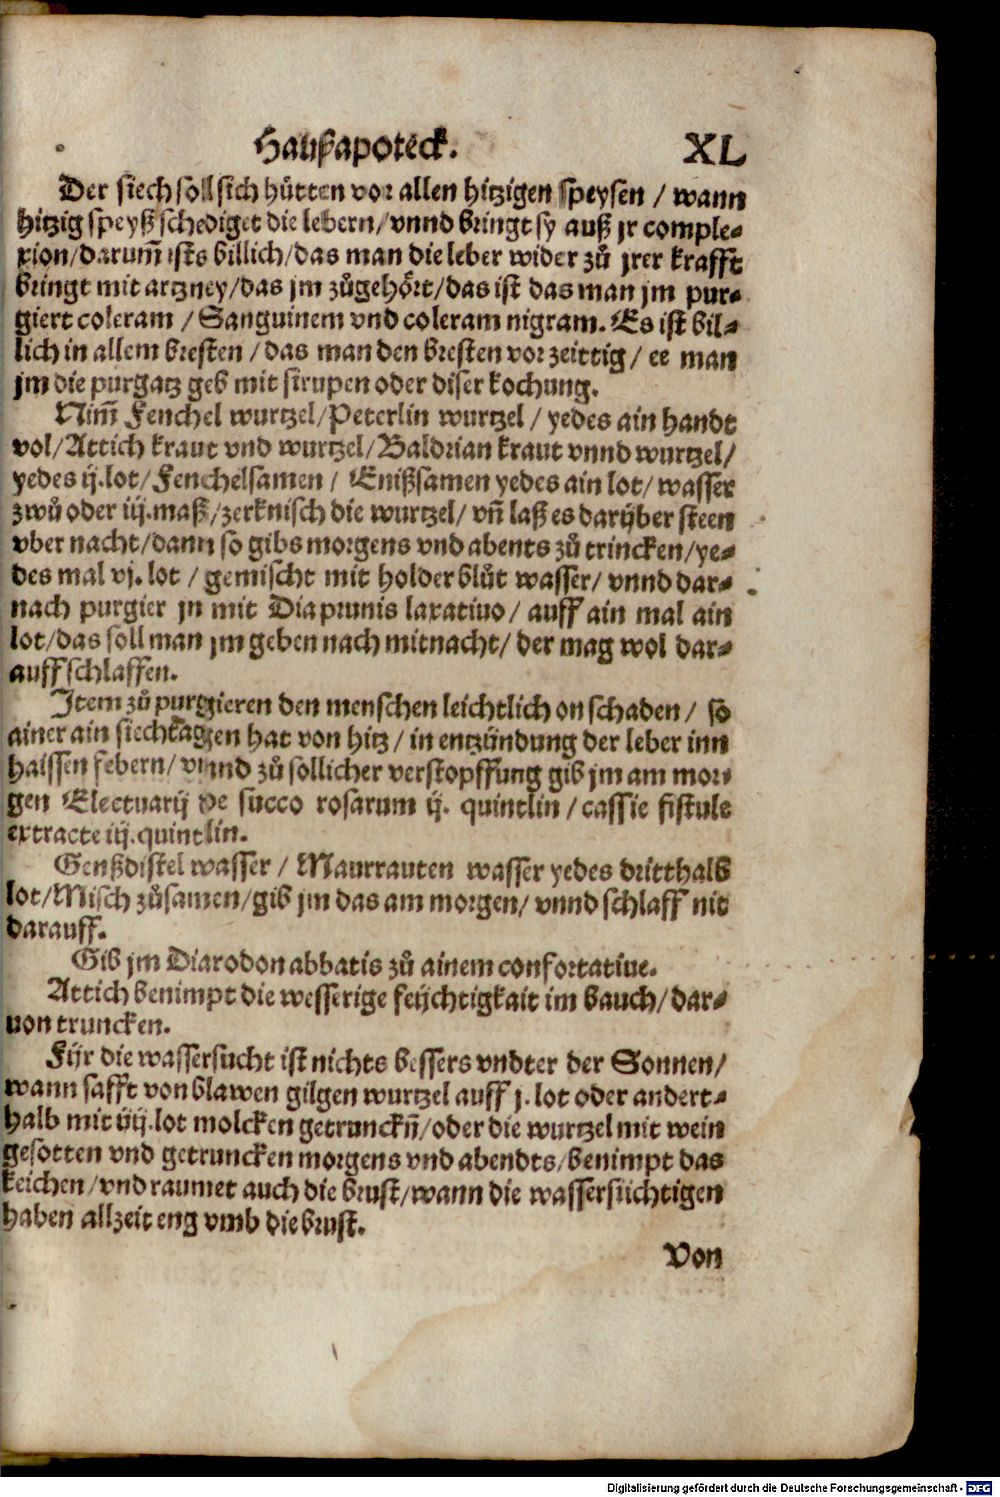 Haußapoteck. XL
Der siech soll sich hütten vor allen hitzigen speysen / wann
hitzig speyß schediget die lebern/ vnnd bringt sy auß jr comple⸗
xion/darum̃ ists billich/das man die leber wider zů jrer krafft
bringt mit artzney/das jm zůgehört/das ist das man jm pur⸗
giert coleram / Sanguinem vnd coleram nigram. Es ist bil⸗
lich in allem bresten / das man den bresten vor zeittig / ee man
jm die purgatz geb mit sirupen oder diser kochung.
Nim̃ Fenchel wurtzel/Peterlin wurtzel / yedes ain handt
vol/Attich kraut vnd wurtzel/Baldrian kraut vnnd wurtzel/
yedes ij.lot/Fenchelsamen / Enißsamen yedes ain lot/ wasser
zwů oder iij.maß/zerknisch die wurtzel/ vñ laß es darüber steen
vber nacht/dann so gibs morgens vnd abents zů trincken/ye⸗
des mal vj. lot / gemischt mit holderblůt wasser/ vnnd dar⸗
nach purgier jn mit Diaprunis laxatiuo / auff ain mal ain
lot/das soll man jm geben nach mitnacht/ der mag wol dar⸗
auff schlaffen.
Item zů purgieren den menschen leichtlich on schaden / so
ainer ain siechtaggen hat von hitz / in entzündung der leber inn
haissen febern/ vnnd zů sollicher verstopffung gib jm am mor⸗
gen Electuarij de succo rosarum ij. quintlin / cassie fistule
extracte iij.quintlin.
Genßdistel wasser / Maurrauten wasser yedes dritthalb
lot/Misch zůsamen/gib jm das am morgen/ vnnd schlaff nit
darauff.
Gib jm Diarodon abbatis zů ainem confortatiue.
Attich benimpt die wesserige feüchtigkait im bauch/ dar⸗
uon truncken.
Für die wassersucht ist nichts bessers vndter der Sonnen/
wann safft von blawen gilgen wurtzel auff j. lot oder andert⸗
halb mit iiij.lot molcken getrunckñ/oder die wurtzel mit wein
gesotten vnd getruncken morgens vnd abendts/benimpt das
keichen/vnd raumet auch die brust/wann die wassersüchtigen
haben allzeit eng vmb die brust.
Von
Digitalisierung gefördert durch die Deutsche Forschungsgemeinschaft - DFG